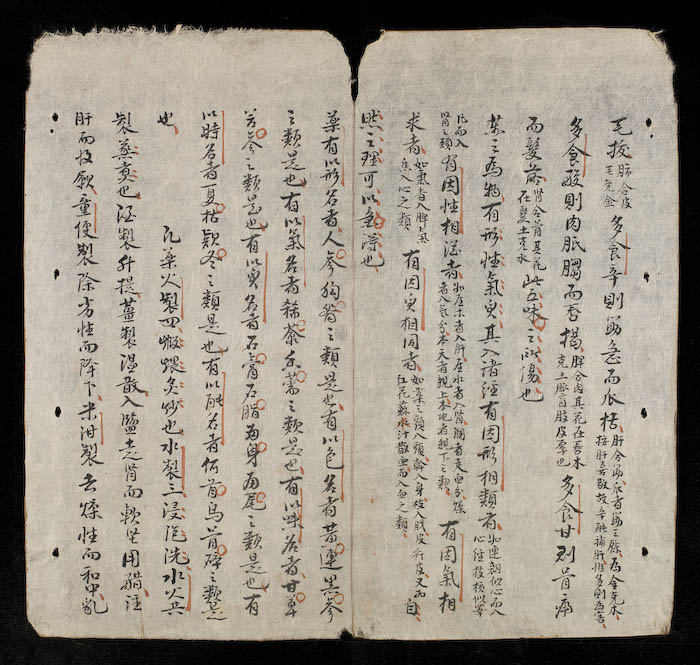 毛拔肺合皮毛克金多食辛則筋急而爪枯肝合筋爪者筋之餘為金克水按肝喜散故辛能補肝惟多則為害
多食酸則肉胝䐢而唇揭脾合肉其花在唇木克土胝音肢皮厚也多食甘則骨痛
而髮落腎合骨其花在髮土克水此五味之所傷也
藥之為物有形性氣質其入諸經有因形相類者如連翹似心而入心荔枝核似睪
丸而入腎之類有因性相從者如屬木者入肝屬水者入腎潤者走血分燥者入氣分本天者親上本地者親下之類有因氣相
求者如氣香入脾氣焦入心之類有因質相同者如藥之頭入頭幹入身枝入肢皮行皮又如紅花蘇木汁似血而入血之類自
然之理可以意得也
藥有以形名者人參狗脊之類是也有以色名者黃連黑參
之類是也有以氣名者豨薟香薷之類是也有以味名者甘草
苦參之類是也有以質名者石膏石脂當身歸尾之類是也有
以時名者夏枯款冬之類是也有以能名者何首烏骨碎之類是
也
凡藥火製四煅煨炙炒也水製三浸泡洗水火共
製蒸煮也酒製升提薑製溫散入鹽走腎而軟堅用醋注
肝而收歛童便製除劣性而降下米泔製去燥性而和中乳